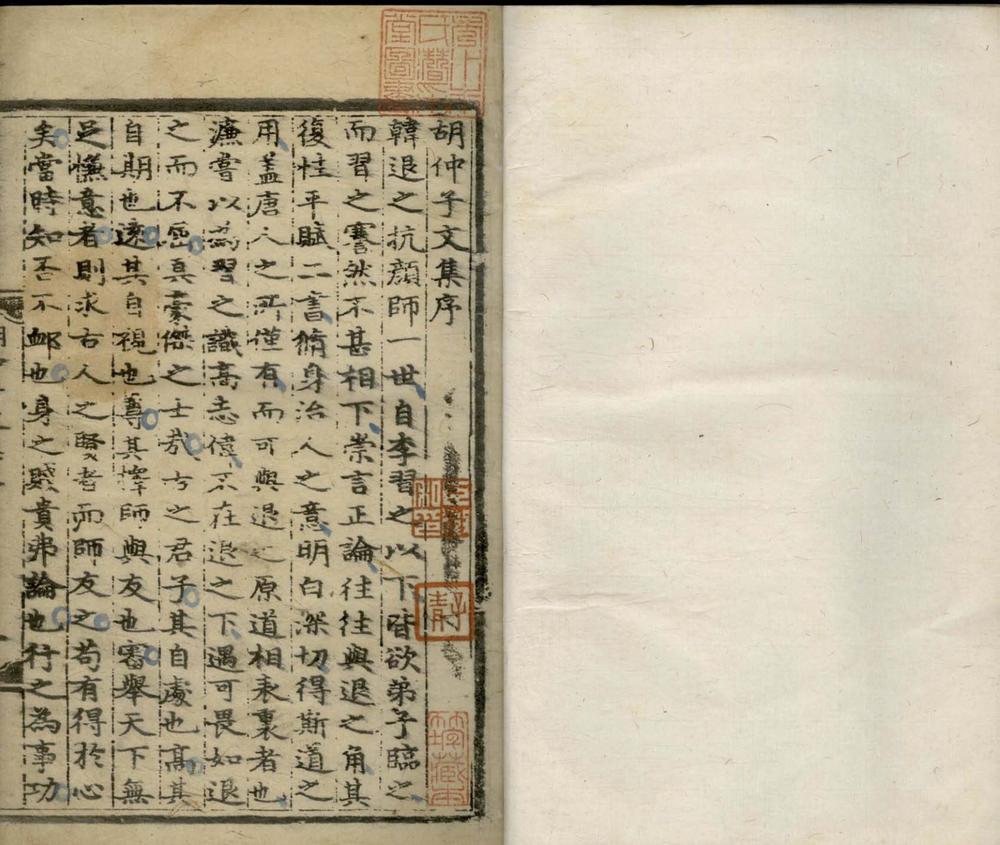 胡仲子文集序
韓退之抗顔師一世自李習之以下皆欲弟子臨之
而習之謇然不甚相下崇言正論往往與退之角其
復性平賦二書脩身治人之意明白深切得斯道之
用蓋唐人之所僅有而可與退之原道相表裏者也
濂嘗以為習之識高志偉不在退之下遇可畏如退
之而不屈真豪傑之士哉古之君子其自處也高其
自期也遠其自視也尊其擇師與友也審舉天下無
足慊意者則求古人之賢者而師友之苟有得於心
矣當時知否不卹也身之賤貴弗論也行之為事功